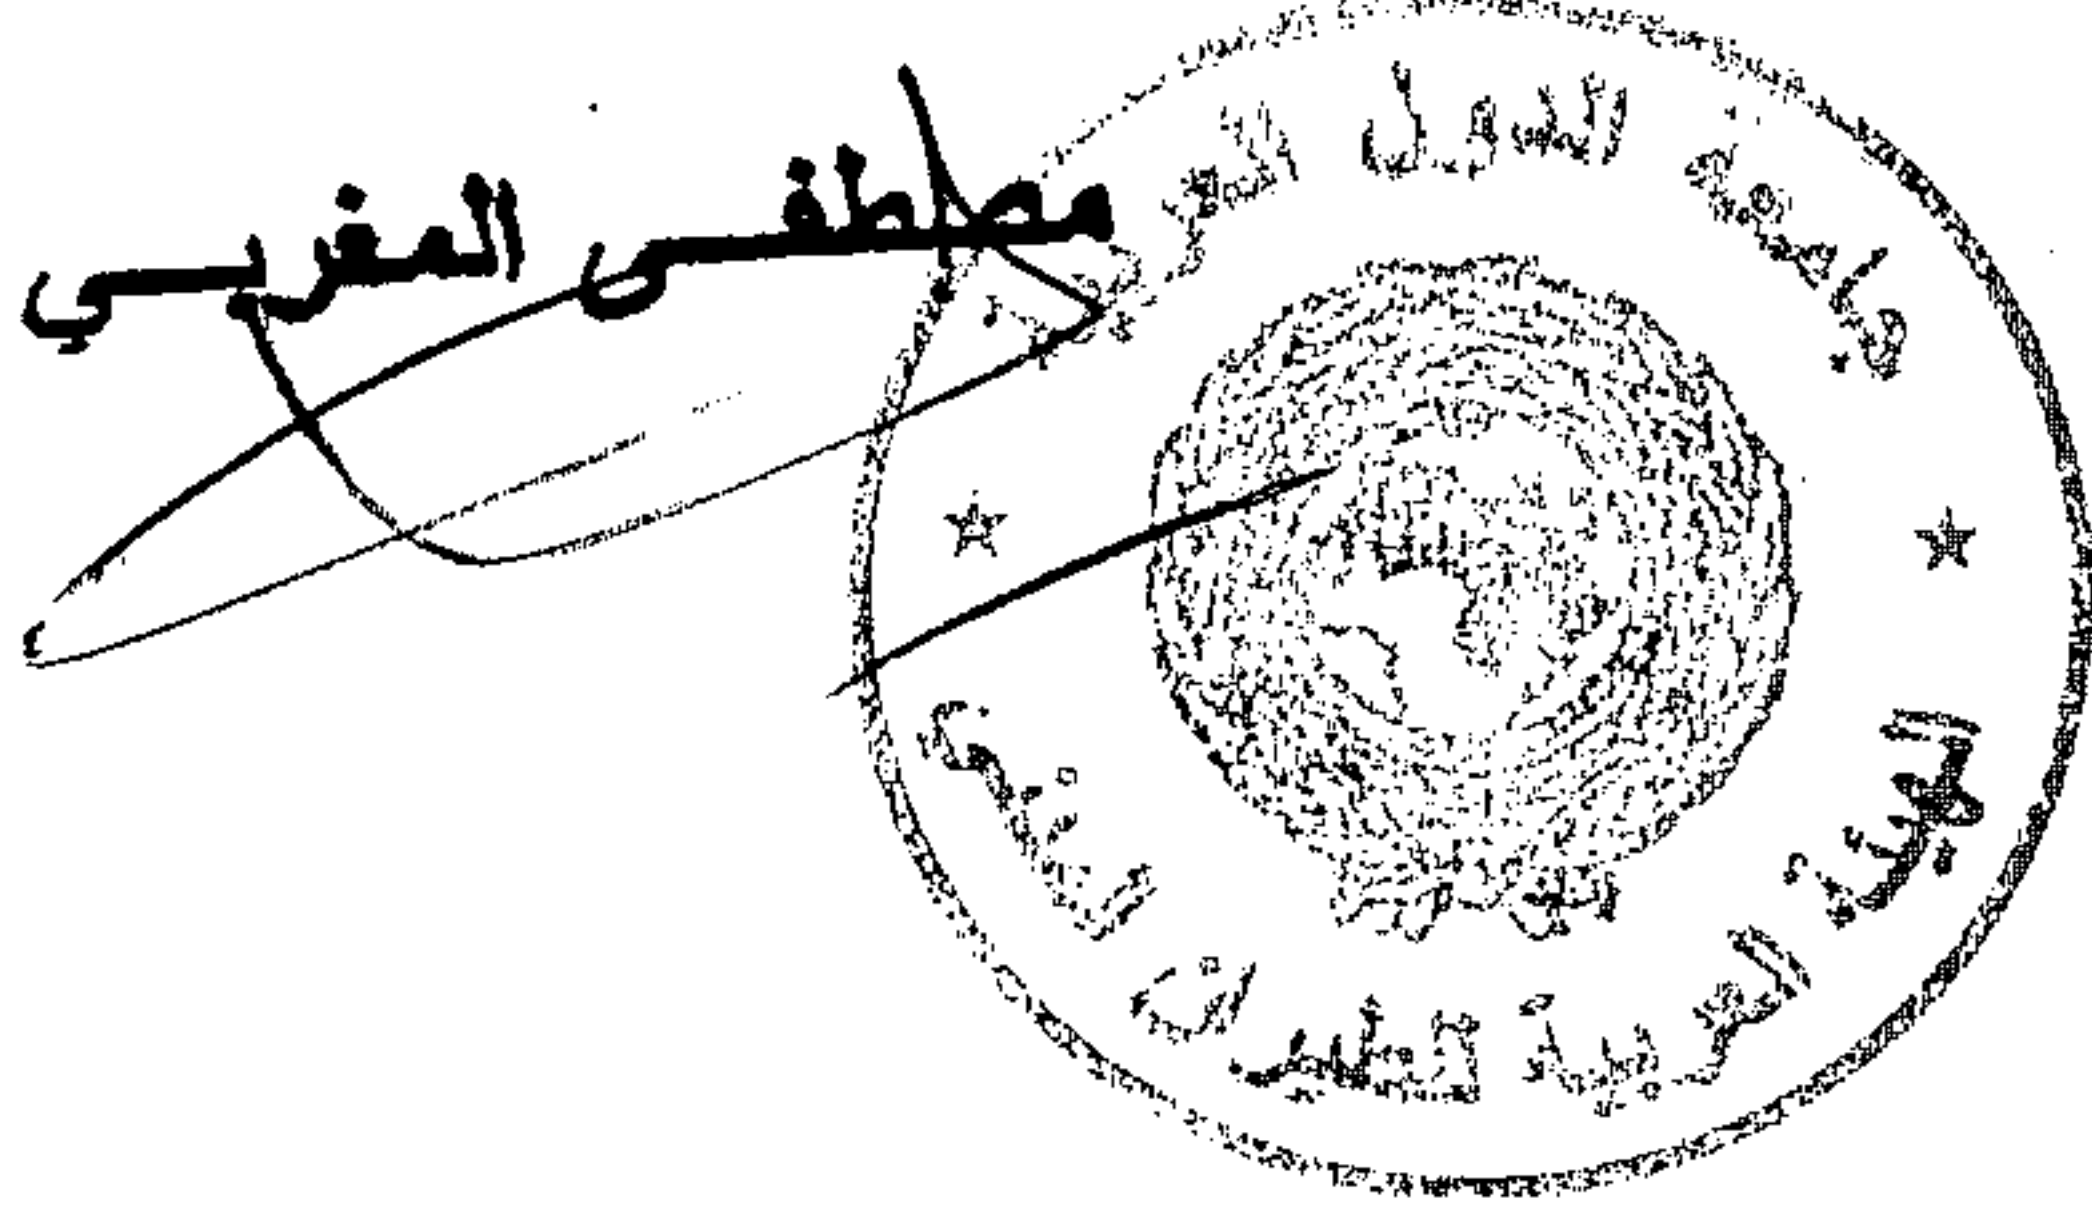 مصطفى المغربي
جامعة الدول العربية
الهيئة العربية للطيران المدني